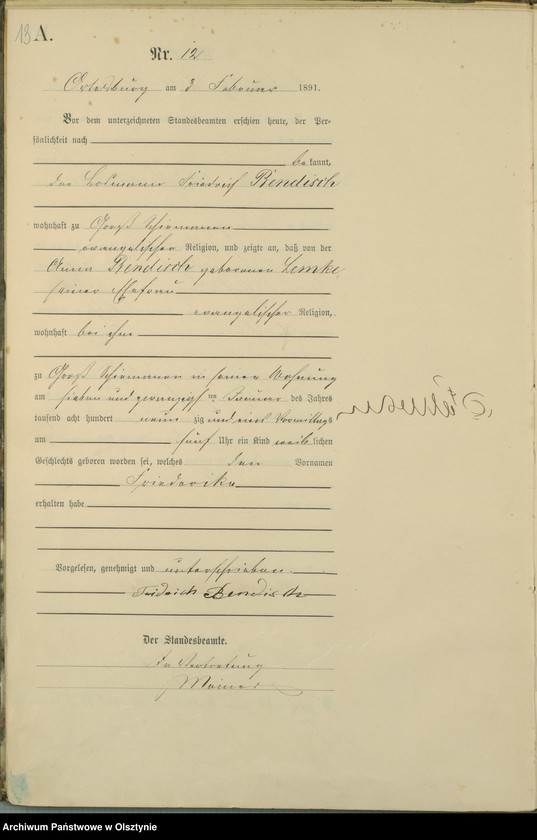 13 A.
Nr. 12
Ortelsburg am 3 Februar 1891.
Vor dem unterzeichneten Standesbeamten erschien heute, der Per-
sönlichkeit nach
bekannt,
der Losmann Friedrich Bendisch
wohnhaft zu Groß Schiemanen
evangelischer Religion, und zeigte an, daß von der
Anna Bendisch geborenen Lemke,
seiner Ehefrau
evangelischer Religion,
wohnhaft bei ihm
zu Groß Schiemanen in seiner Wohnung
am sieben und zwanzigsten Januar des Jahres
tausend acht hundert neunzig und eins Vormittags
um fünf Uhr ein Kind weiblichen
Geschlechts geboren worden sei, welches den Vornamen
Friederike
erhalten habe
Vorgelesen, genehmigt und unterschrieben
Fridrich Bendisch
Der Standesbeamte.
In Vertretung
Archiwum Państwowe w Olsztynie